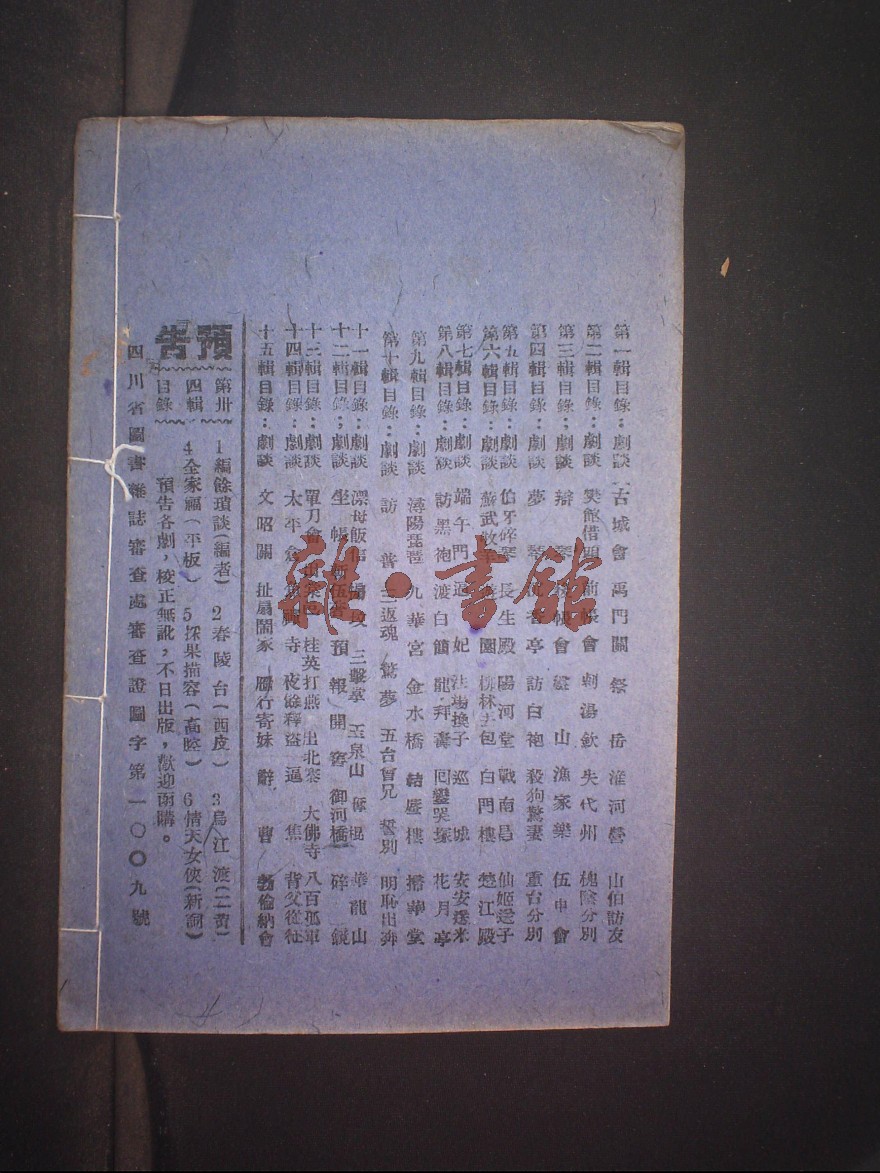 第一輯目錄：劇談 古城會 禹門關 祭 岳 淮河營 山伯訪友
第二輯目錄：劇談 奘館借頭 前帳會 刺湯欽 失代州 槐陰分別
第三輯目錄：劇談 辯 帳會 盤山 漁家樂 伍申會
第四輯目錄：劇談 夢 亭 訪白袍 殺狗驚妻 重台分別
第五輯目錄：劇談 伯牙碎琴 長生殿 陽河堂 戰南昌 仙姬送子
第六輯目錄：劇談 蘇武牧羊 園 柳林 包 白門樓 楚江殿
第七輯目錄：劇談 端午門 逼妃 法場換子 巡城 安安送米
第八輯目錄：劇談 訪黑袍 渡白簡 龍拜壽 回鑾哭塚 花月亭
第九輯目錄：劇談 潯陽琵琶 九華宮 金水橋 樓 華堂
第十輯目錄：劇談 訪普 返魂 驚夢 五台會兄 誓別 明恥出奔
十一輯目錄：劇談 漂母飯信 三擊掌 玉泉山 華龍山
十二輯目錄：劇談 坐帳 預報 開窰 御河橋 碎鏡
十三輯目錄：劇談 單刀會 桂英打燕 出北寨 大佛寺 八百孤軍
十四輯目錄：劇談 太平 寺 夜餘釋盜 逼焦 背父從征
十五輯目錄：劇談 文昭關 扯扇鬧家 雁行寄妹 辭曹 勃倫納會
預告
第卅四輯目錄
1編餘瑣談(編者) 2春陵台(西皮) 3烏江渡(二黃)
4全家福(平板) 5採果描容(高腔) 6情天女俠(新詞)
預告各劇，校正無訛，不日出版，歡迎函購。
四川省圖書雜誌審查處審查證圖字第一〇〇九號
雜·書館